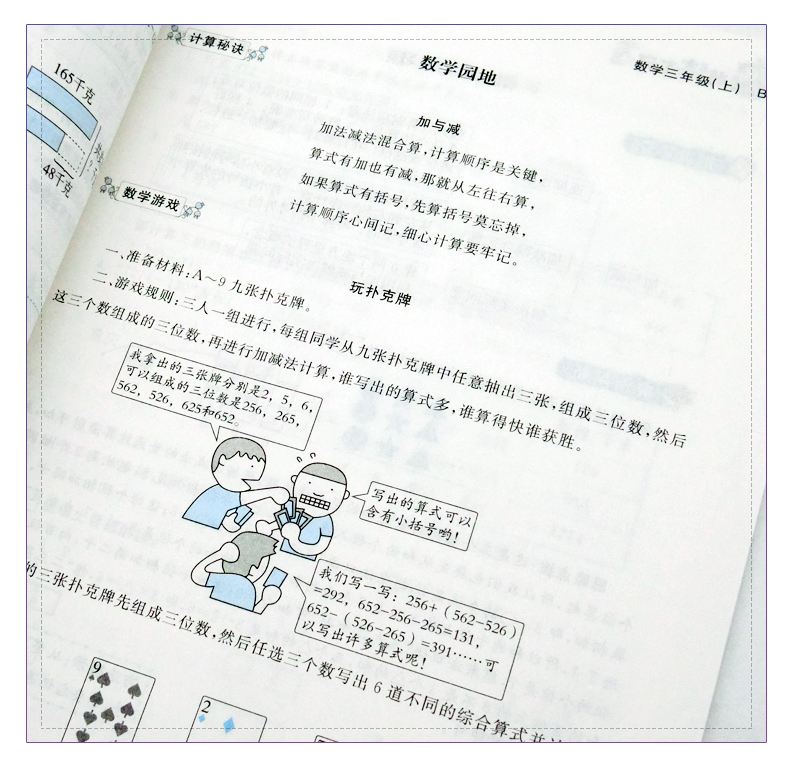 165千克
48千克
计算秘诀
数学园地
数学三年级(上) B
加与减
加法减法混合算,计算顺序是关键,
算式有加也有减,那就从左往右算,
如果算式有括号,先算括号莫忘掉,
计算顺序心间记,细心计算要牢记。
数学游戏
玩扑克牌
一、准备材料:A～9 九张扑克牌。
二、游戏规则:三人一组进行,每组同学从九张扑克牌中任意抽出三张,组成三位数,然后
这三个数组成的三位数,再进行加减法计算,谁写出的算式多,谁算得快谁获胜。
我拿出的三张牌分别是2，5，6，
可以组成的三位数是256，265，
562，526，625和652。
写出的算式可以
含有小括号哟！
我们写一写：256+（562-526）
=292，652-256-265=131，
652-（526-265）=391……可
以写出许多算式呢！
的三张扑克牌先组成三位数,然后任选三个数写出 6 道不同的综合算式并
9
2